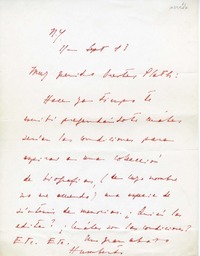 NY
11 Sept 83
Muy querido Oreste Plath:
Hace ya tiempo te
escribí preguntándote cuáles
serían las condiciones para
aparecer en una colección
de biografías, (de cuyo nombre
no me acuerdo) una especie de
síntesis de memorias. ¿Quién las
edita? ¿Cuáles son las condiciones?
Etc. Etc. Un gran abrazo
Humberto